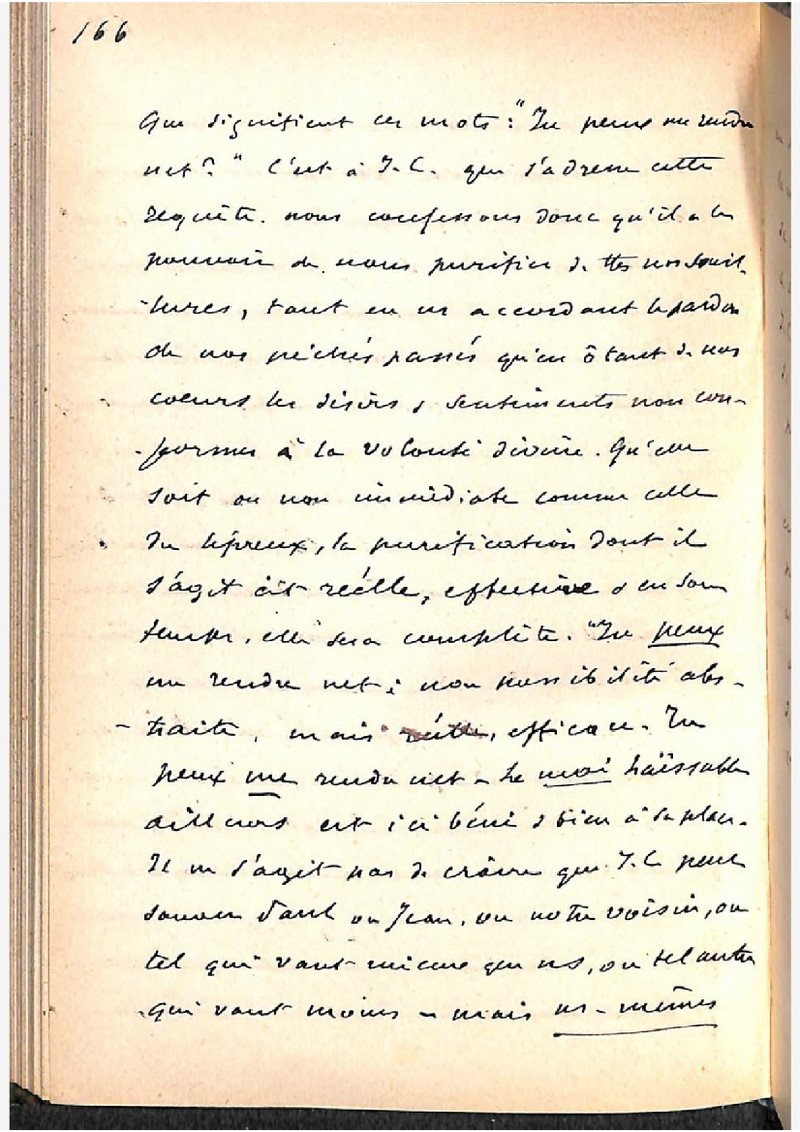 166
Que signifient ces mots : "Tu peux me rendre
net ?" C'est à J.C. que s'adresse cette
requête. nous confessons donc qu'il a le
pouvoir de nous purifier de ttes nos souil-
-lures, tant en ns accordant le pardon
de nos péchés passés qu'en ôtant de nos
coeurs les désirs & sentiments non con-
-formes à la volonté divine. Qu'elle
soit ou non immédiate comme celle
du lépreux, la purification dont il
s'agit est réelle, effective & en son
temps, elle sera complète. "Tu peux
me rendre net ; non possibilité abs-
-traite, mais réelle, efficace. Tu
peux me rendre net - le moi haïssable
ailleurs est ici béni & bien à sa place.
Il ne s'agit pas de croire que J.C peut
sauver Paul ou Jean, ou notre voisin, ou
tel qui vaut mieux que ns, ou tel autre
qui vaut moins - mais ns-mêmes